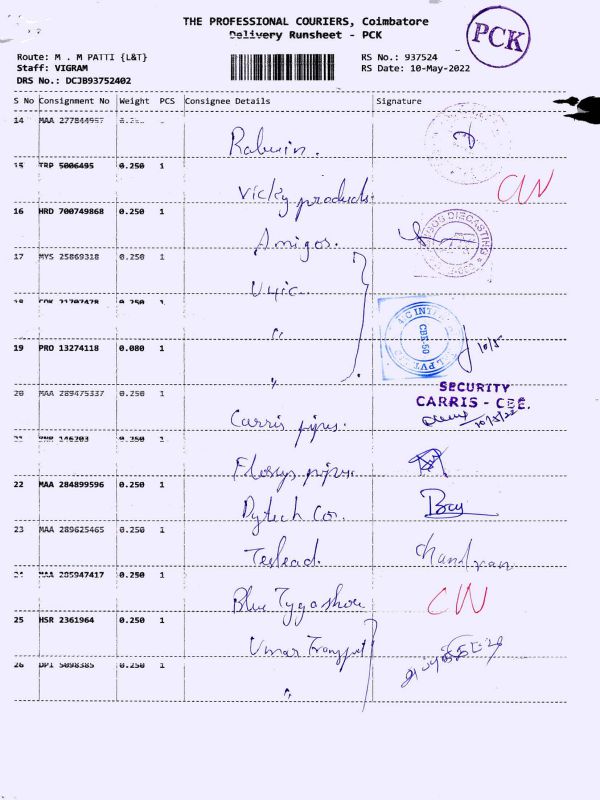 THE PROFESSIONAL COURIERS, Coimbatore
Delivery Runsheet - PCK
PCK
Route: M . M PATTI {L&T}
Staff: VIGRAM
DRS No.: DCJB93752402
RS No.: 937524
RS Date: 10-May-2022
S No Consignment No Weight PCS Consignee Details Signature
14 MAA 277844957
Rabwin.
15 TRP 5006495 0.250 1
Vicky products.
16 HRD 700749868 0.250 1
Amigos.
17 MYS 25869318 0.250 1
18 1
"
19 PRO 13274118 0.080 1
10/5
"
SECURITY
CARRIS - CBE.
20 MAA 289475337 0.250 1
10/5/22
Carris pipes.
21 146203 0.350 1
22 MAA 284899596 0.250 1
Pytech Co.
23 MAA 289625465 0.250 1
Chandran
24 MAA 285947417 0.250 1
CW
25 HSR 2361964 0.250 1
Umar Transport
26 DPI 5098385 0.250 1
"